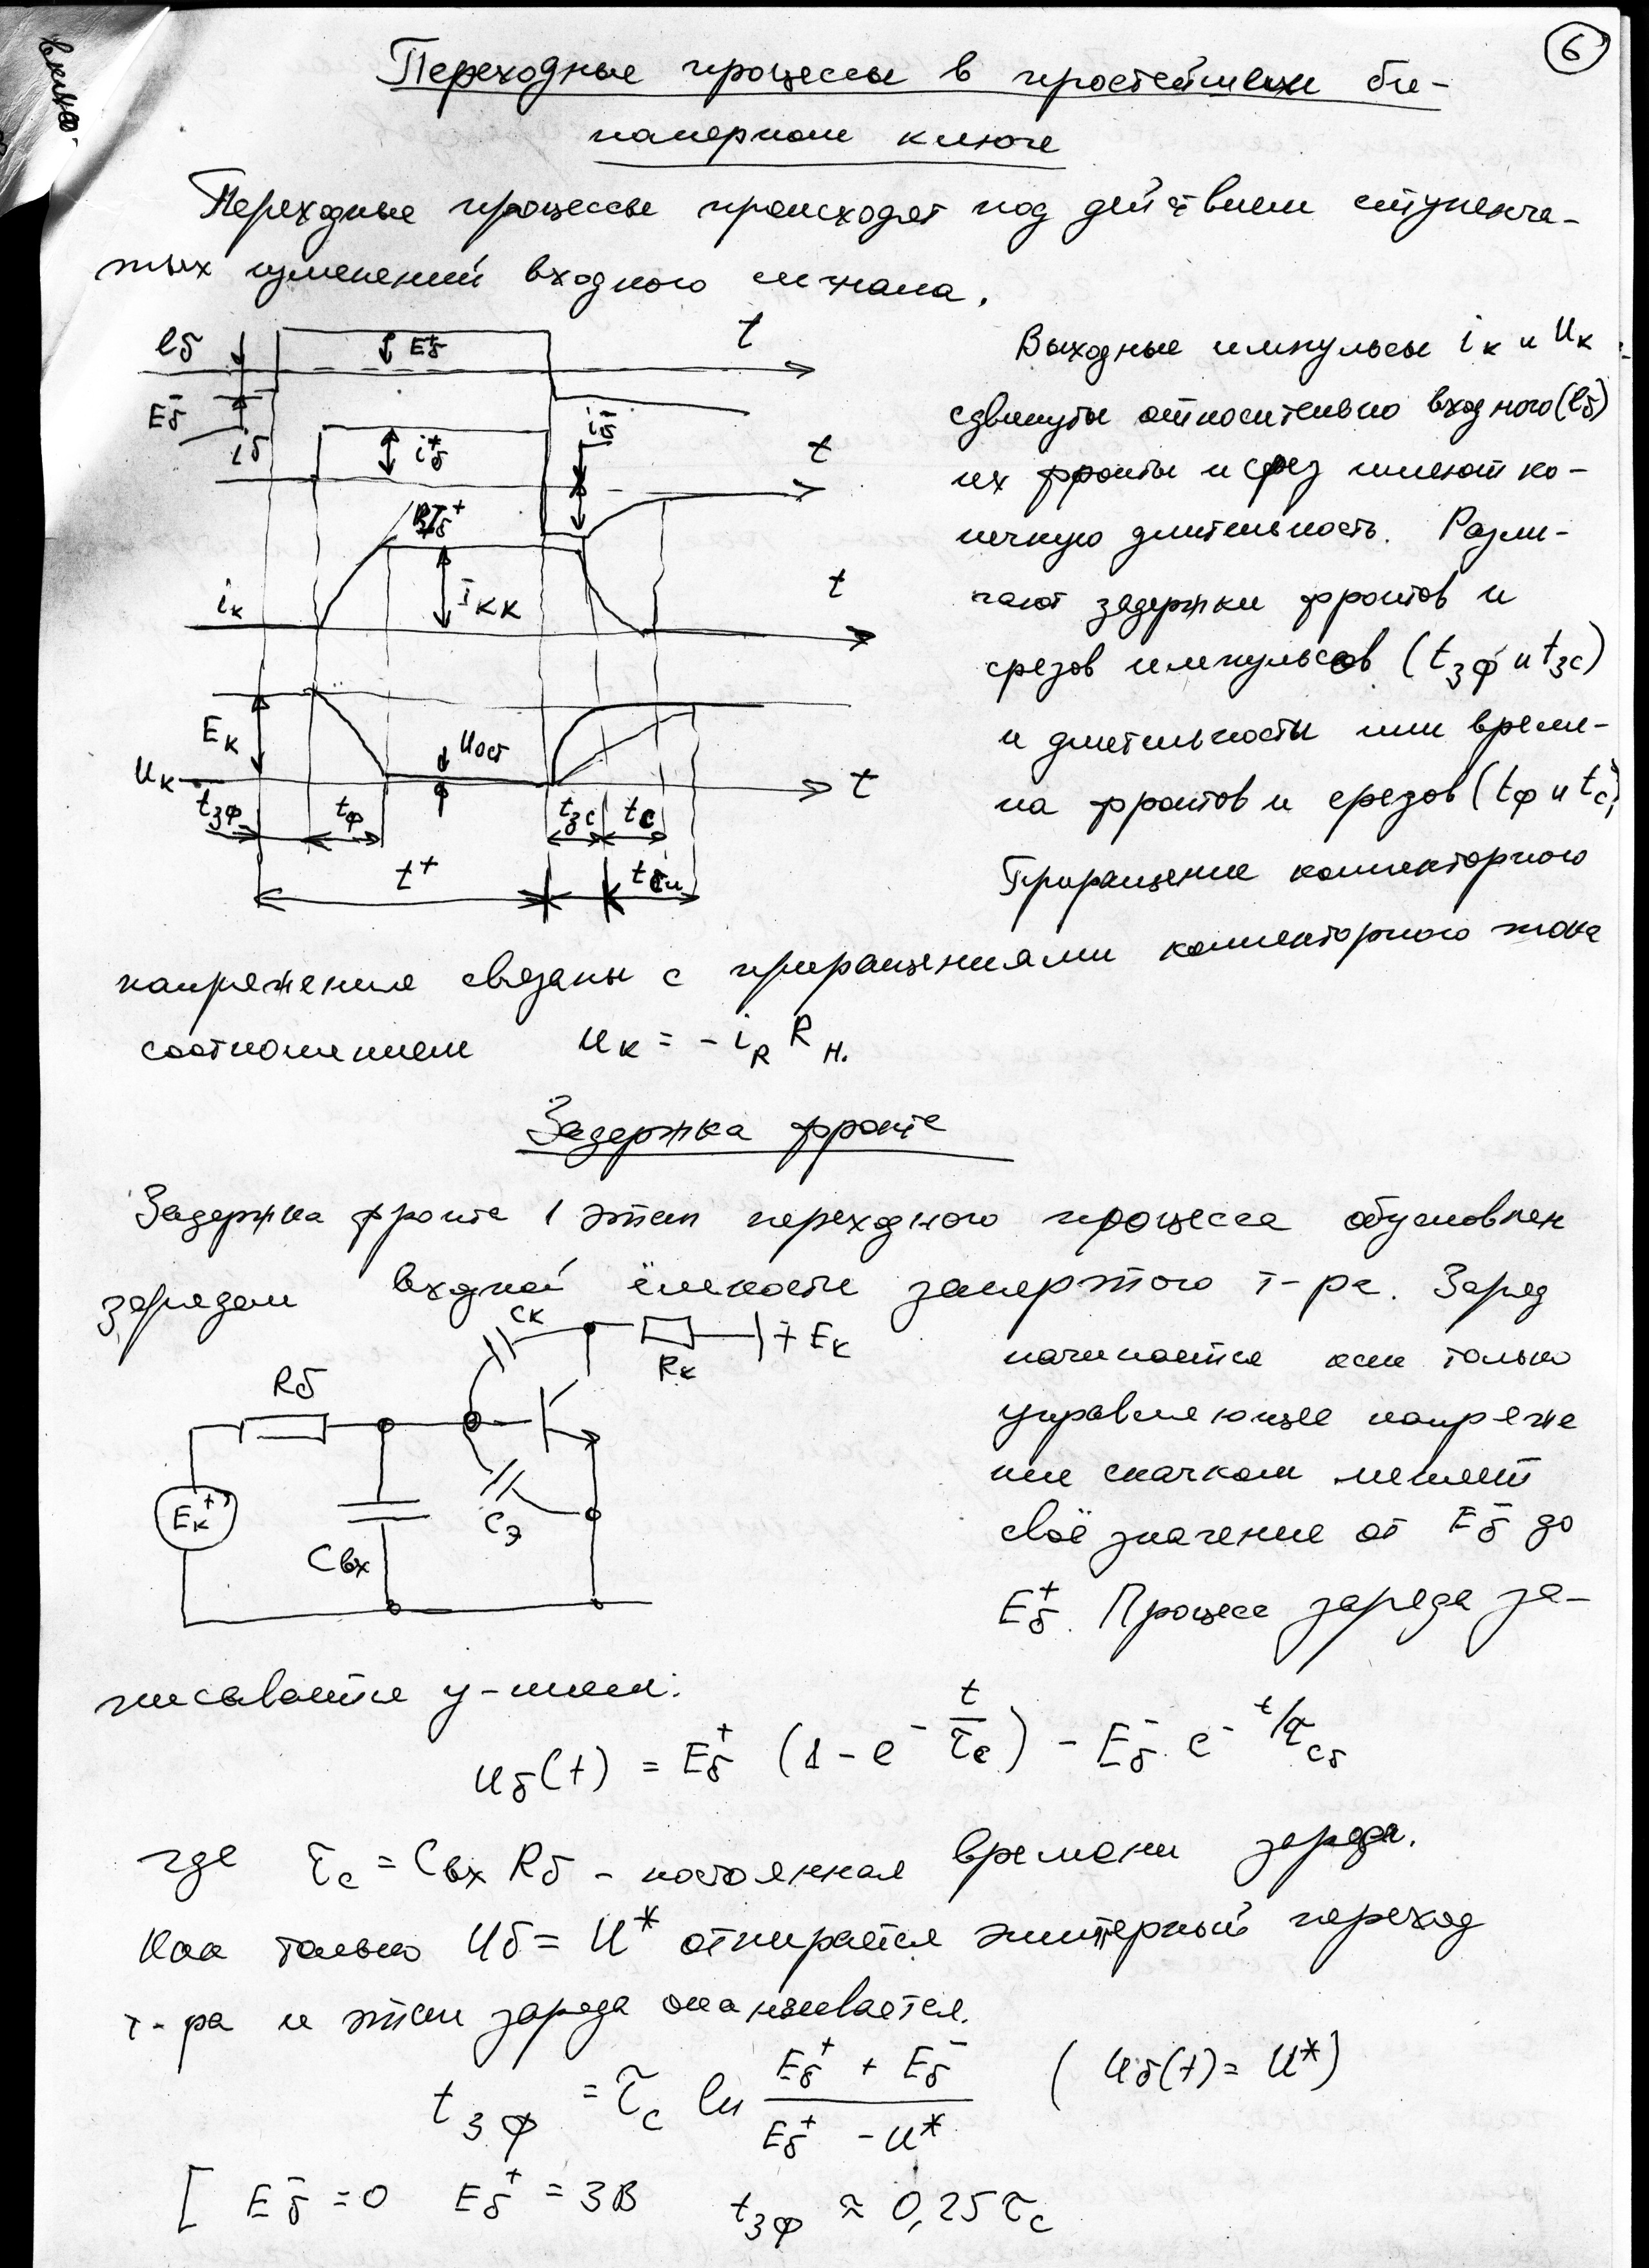 6
Переходные процессы в простейшем би-
полярном ключе
Переходные процессы происходят под действием ступенча-
тых изменений входного сигнала.
eб
Eб⁺
t
Eб⁻
iб
iб⁺
iб⁻
t
BIб⁺
iк
Iкк
t
Eк
Uост
Uк
t
tзф
tф
tзс
tс
t⁺
tси
Выходные импульсы iк и Uк
сдвинуты относительно входного (eб)
их фронты и срез имеют ко-
нечную длительность. Разли-
чают задержки фронтов и
срезов импульсов (tзф и tзс)
и длительности или време-
на фронтов и срезов (tф и tс)
Приращение коллекторного
напряжения связаны с приращениями коллекторного тока
соотношением Uк = - iR Rн.
Задержка фронта
Задержка фронта 1 этап переходного процесса обусловлен
зарядом входной ёмкости запертого т-ра. Заряд
Cк
Rк
+ Eк
Rб
Eк⁺
Cвх
Cэ
начинается как только
управляющее напряже
ние скачком меняет
своё значение от Eб⁻ до
Eб⁺. Процесс заряда за-
писывается у-нием:
uб(t) = Eб⁺ (1 - e^(- t/τс)) - Eб⁻ e^(- t/τсб)
где τс = Cвх Rб - постоянная времени заряда.
Как только Uб = U* отпирается эмиттерный переход
т-ра и этап заряда оканчивается.
tзф = τс ln (Eб⁺ + Eб⁻)/(Eб⁺ - U*) (Uб(t) = U*)
[ Eб⁻ = 0 Eб⁺ = 3В tзф ≈ 0,25 τс